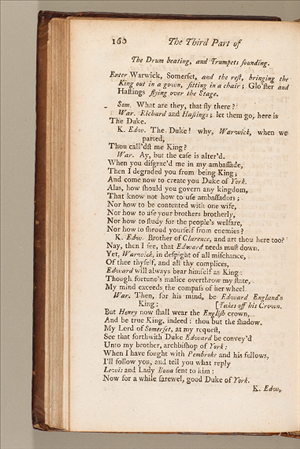 160 The Third Part of
The Drum beating, and Trumpets sounding.
Enter Warwick, Somerset, and the rest, bringing the
King out in a gown, sitting in a chair; Glo'ster and
Hastings flying over the Stage.
Som. What are they, that fly there?
War. Richard and Hastings: let them go, here is
The Duke.
K. Edw. The Duke! why, Warwick, when we
parted,
Thou call'dst me King?
War. Ay, but the case is alter'd.
When you disgrac'd me in my ambassade,
Then I degraded you from being King;
And come now to create you Duke of York.
Alas, how should you govern any kingdom,
That know not how to use ambassadors;
Nor how to be contented with one wife,
Nor how to use your brothers brotherly,
Nor how to study for the people's welfare,
Nor how to shroud yourself from enemies?
K. Edw. Brother of Clarence, and art thou here too?
Nay, then I see, that Edward needs must down.
Yet, Warwick, in despight of all mischance,
Of thee thyself, and all thy complices,
Edward will always bear himself as King:
Though fortune's malice overthrow my state,
My mind exceeds the compass of her wheel.
War. Then, for his mind, be Edward England's
King: [Takes off his Crown.
But Henry now shall wear the English crown,
And be true King, indeed: thou but the shadow.
My Lord of Somerset, at my request,
See that forthwith Duke Edward be convey'd
Unto my brother, archbishop of York:
When I have fought with Pembroke and his fellows,
I'll follow you, and tell you what reply
Lewis and Lady Bona sent to him:
Now for a while farewel, good Duke of York.
K. Edw.